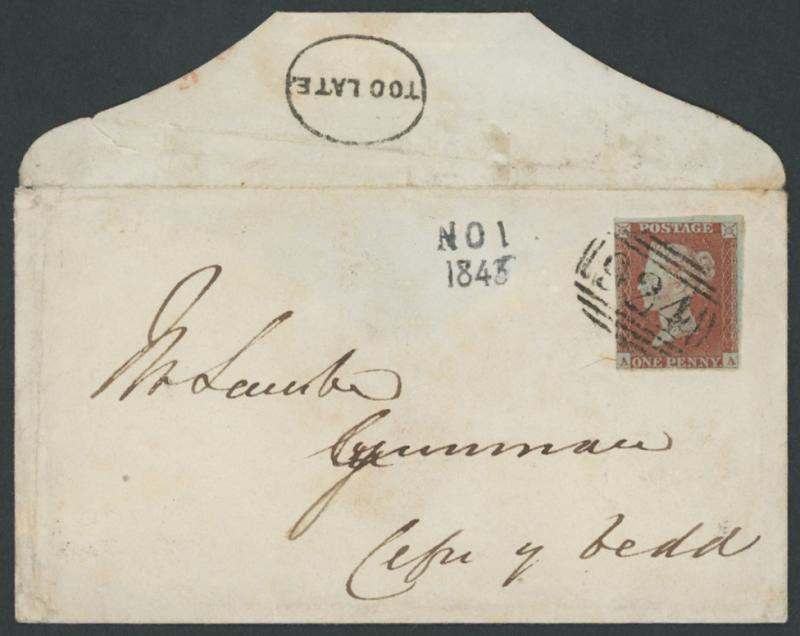 TOO LATE
NO 1
1843
POSTAGE
A A
ONE PENNY
Mr
Cefn y bedd